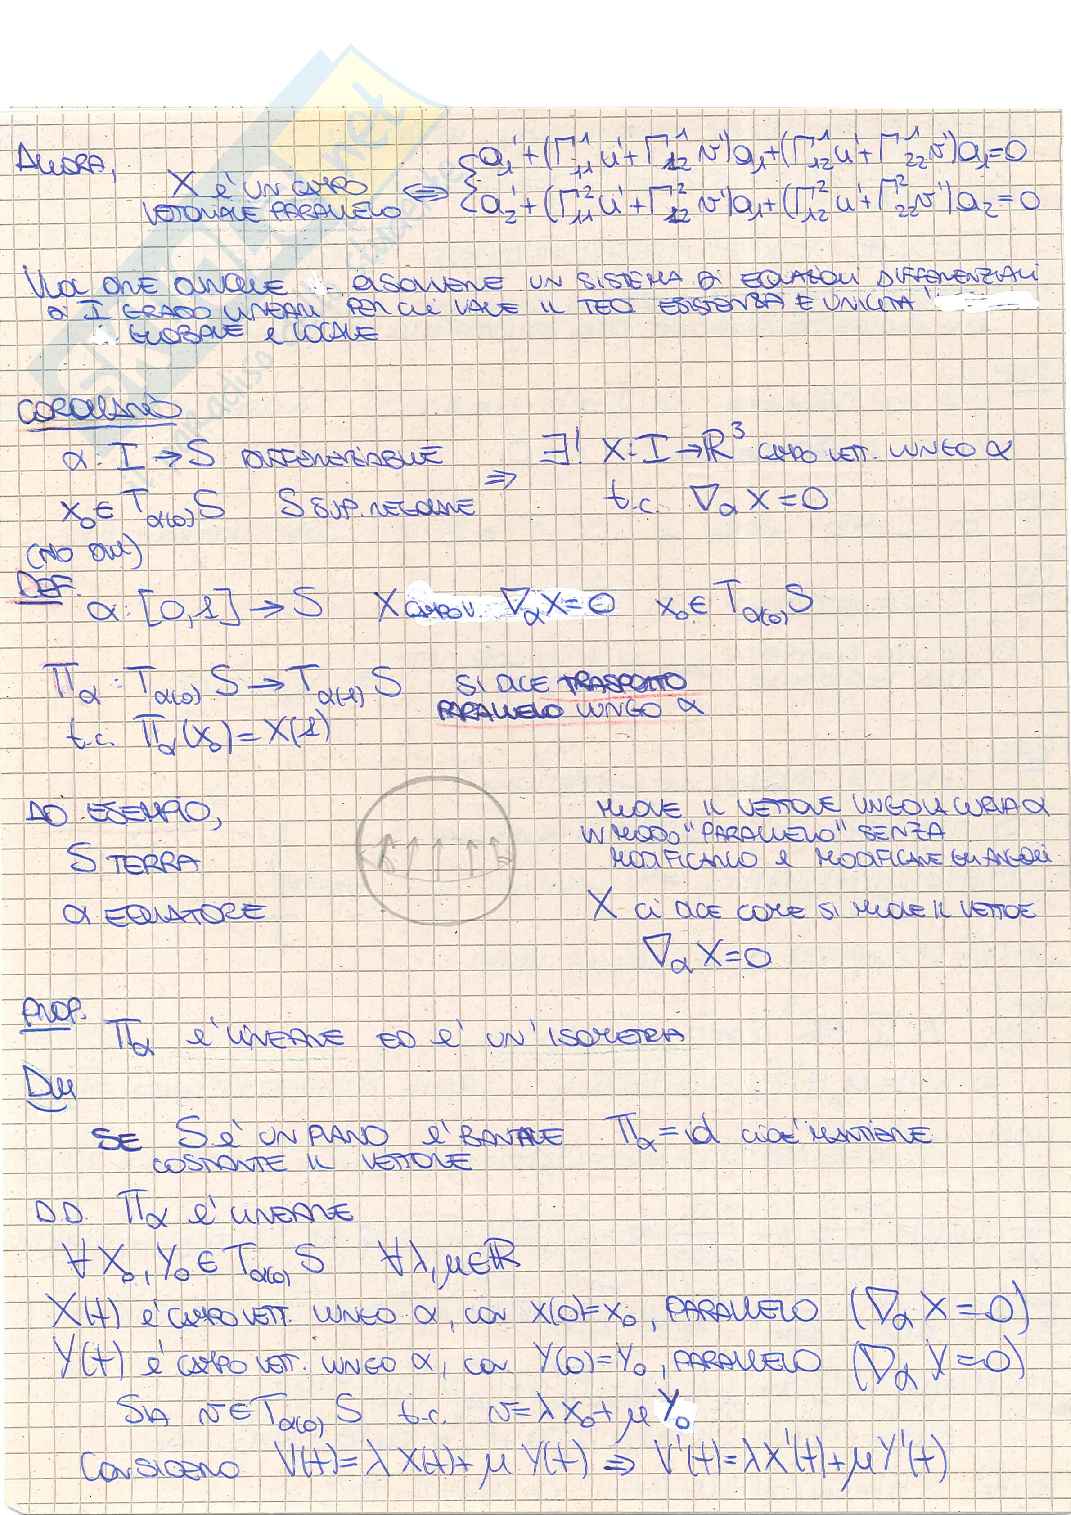 ALLORA,
X è UN CAMPO VETTORIALE PARALLELO ⇔ { a₁' + (Γ₁₁¹ u' + Γ₁₂¹ v')a₁ + (Γ₁₂¹ u' + Γ₂₂¹ v')a₁ = 0
{ a₂' + (Γ₁₁² u' + Γ₁₂² v')a₁ + (Γ₁₂² u' + Γ₂₂² v')a₂ = 0
RISOLVERE UN SISTEMA DI EQUAZIONI DIFFERENZIALI
DI I GRADO LINEARI PER CUI VALE IL TEO ESISTENZA E UNICITà
GLOBALE E LOCALE
COROLLARIO
α: I → S DIFFERENZIABILE ⇒ ∃! X: I → ℝ³ CAMPO VETT. LUNGO α
x₀ ∈ T_α(0) S S SUP. REGOLARE t.c. ∇_α X = 0
(NO DIM)
DEF. α: [0,1] → S X CAMPO V. ∇_α X = 0 x₀ ∈ T_α(0) S
Π_α: T_α(0) S → T_α(1) S SI DICE TRASPORTO
PARALLELO LUNGO α
t.c. Π_α(x₀) = X(1)
AD ESEMPIO,
S TERRA
α EQUATORE
MUOVE IL VETTORE LUNGO LA CURVA α
IN MODO "PARALLELO" SENZA
MODIFICARLO E MODIFICARE GLI ANGOLI
X CI DICE COME SI MUOVE IL VETTORE
∇_α X = 0
PROP.
Π_α è LINEARE ED è UN'ISOMETRIA
DIM
SE S è UN PIANO è BANALE Π_α = id CIOè MANTIENE
COSTANTE IL VETTORE
D.D. Π_α è LINEARE
∀ X₀, Y₀ ∈ T_α(0) S ∀ λ, μ ∈ ℝ
X(t) è CAMPO VETT. LUNGO α, CON X(0)=X₀, PARALLELO (∇_α X = 0)
Y(t) è CAMPO VET. LUNGO α, CON Y(0)=Y₀, PARALLELO (∇_α Y = 0)
SIA v ∈ T_α(0) S t.c. v = λX₀ + μ Y₀
CONSIDERO V(t) = λ X(t) + μ Y(t) ⇒ V'(t) = λX'(t) + μY'(t)